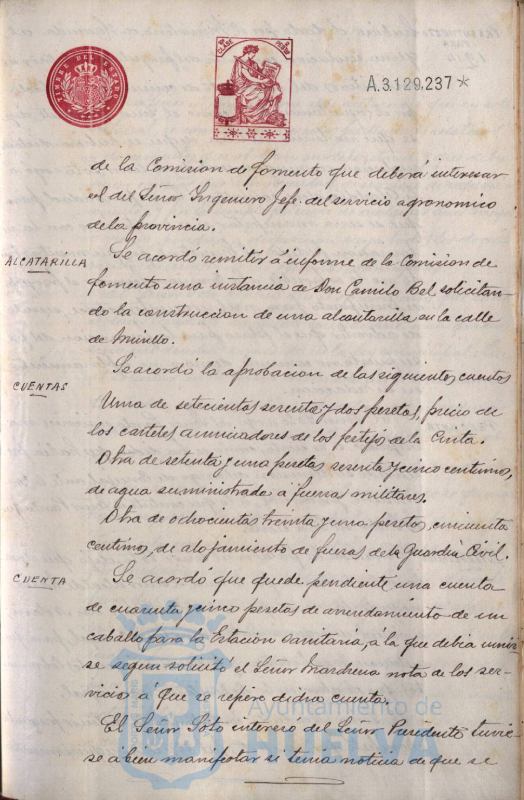 TIMBRE DEL ESTADO
CLASE
A.3.129.237*
de la Comision de fomento que deberá interesar
el del Señor Ingeniero Jefe del servicio agronomico
de la provincia.
ALCATARILLA
Se acordó remitir á informe de la Comision de
fomento una instancia de Don Camilo Bel solicitan-
do la construccion de una alcantarilla en la calle
de Murillo.
CUENTAS
Se acordó la aprobacion de las siguientes cuentas
Una de setecientas sesenta y dos pesetas, precio de
los carteles anunciadores de los festejos de la Cinta.
Otra de setenta y una pesetas sesenta y cinco centimos,
de agua suministrada á fuerzas militares.
Otra de ochocientas treinta y una pesetas, cincuenta
centimos, de alojamiento de fuerzas de la Guardia Civil.
CUENTA
Se acordó que quede pendiente una cuenta
de cuarenta y cinco pesetas de arrendamiento de un
caballo para la Estacion sanitaria, á la que debia unir-
se segun solicitó el Señor Marchena nota de los ser-
vicios á que se refiere dicha cuenta.
El Señor Soto interesó del Señor Presidente tuvie-
se a bien manifestar si tenia noticia de que se
Ayuntamiento de
HUELVA